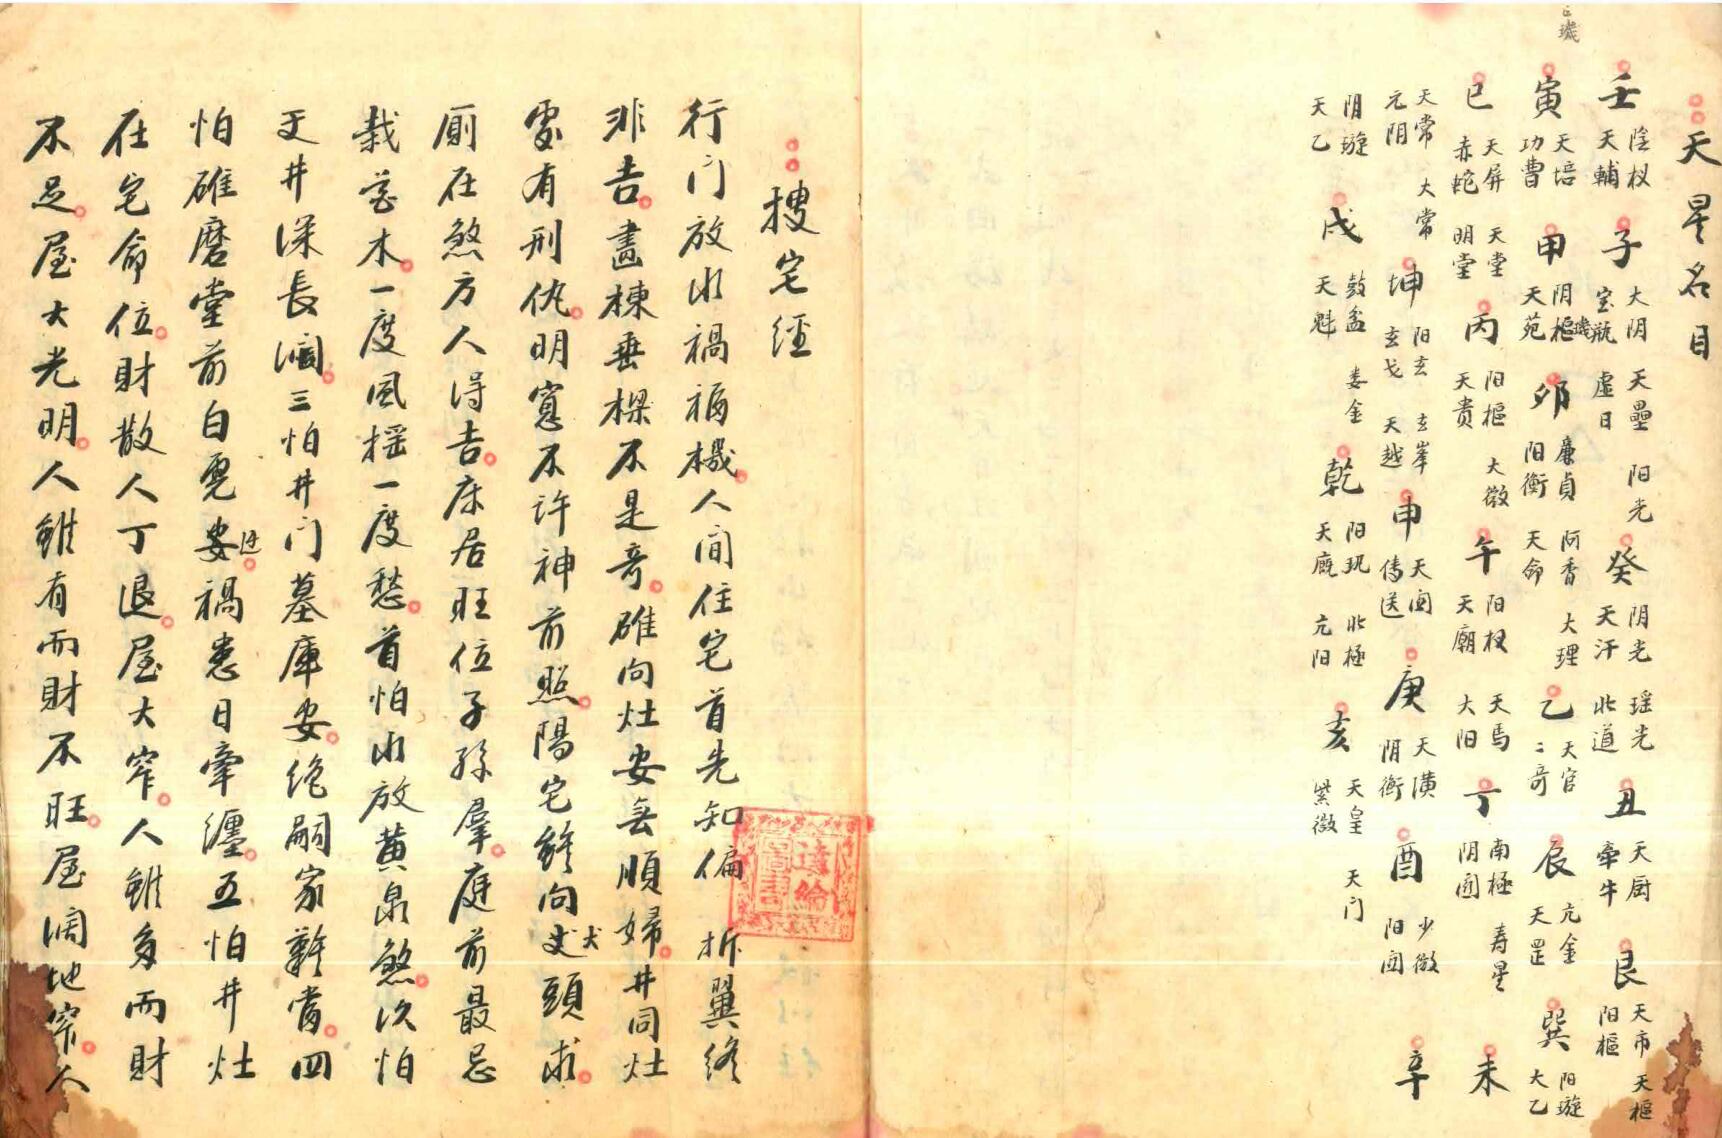 天星名目
壬 陰权 天輔 子 大阴 宝瓶 天壘 虚日 阳光 癸 阴光 天汗 瑶光 北道 丑 天厨 牵牛 艮 天市 阳樞 天樞
寅 天培 功曹 甲 阴樞 璣 天苑 卯 廉貞 阳衡 阿香 天命 大理 乙 天官 二奇 辰 亢金 天罡 巽 阳璇 大乙
巳 天屏 赤蛇 天堂 明堂 丙 阳樞 天贵 大微 午 阳权 天廟 天馬 大阳 丁 南極 阴闿 寿星 未
天常 元阴 大常 坤 阳玄 玄戈 玄峯 天越 申 天闿 传送 庚 天潢 阴衡 酉 少微 阳闿 辛
阴璇 天乙 戌 鼓盆 天魁 娄金 乾 阳玑 天廐 北極 亢阳 亥 天皇 紫微 天门
搜宅經
行门放水禍福機人间住宅首先知偏拆翼终
非吉畫棟垂樑不是奇碓向灶安無順婦井同灶
處有刑仇明窓不许神前照陽宅难向犬頭求
厠在煞方人得吉床居旺位子孫羣庭前最忌
栽苍木一度風摇一度愁首怕水放黄泉煞次怕
天井深長阔三怕井门墓庫安绝嗣家難當四
怕碓磨堂前白虎娄进禍患日牵纏五怕井灶
在宅命位財散人丁退屋大窄人雖多而財
不足屋大光明人雖有而財不旺屋阔地窄人